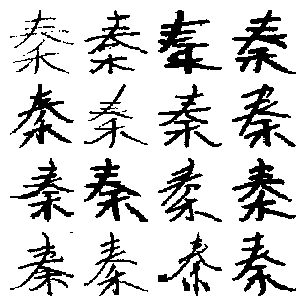 秦秦秦秦
秦秦秦秦
秦秦秦秦
秦秦秦秦